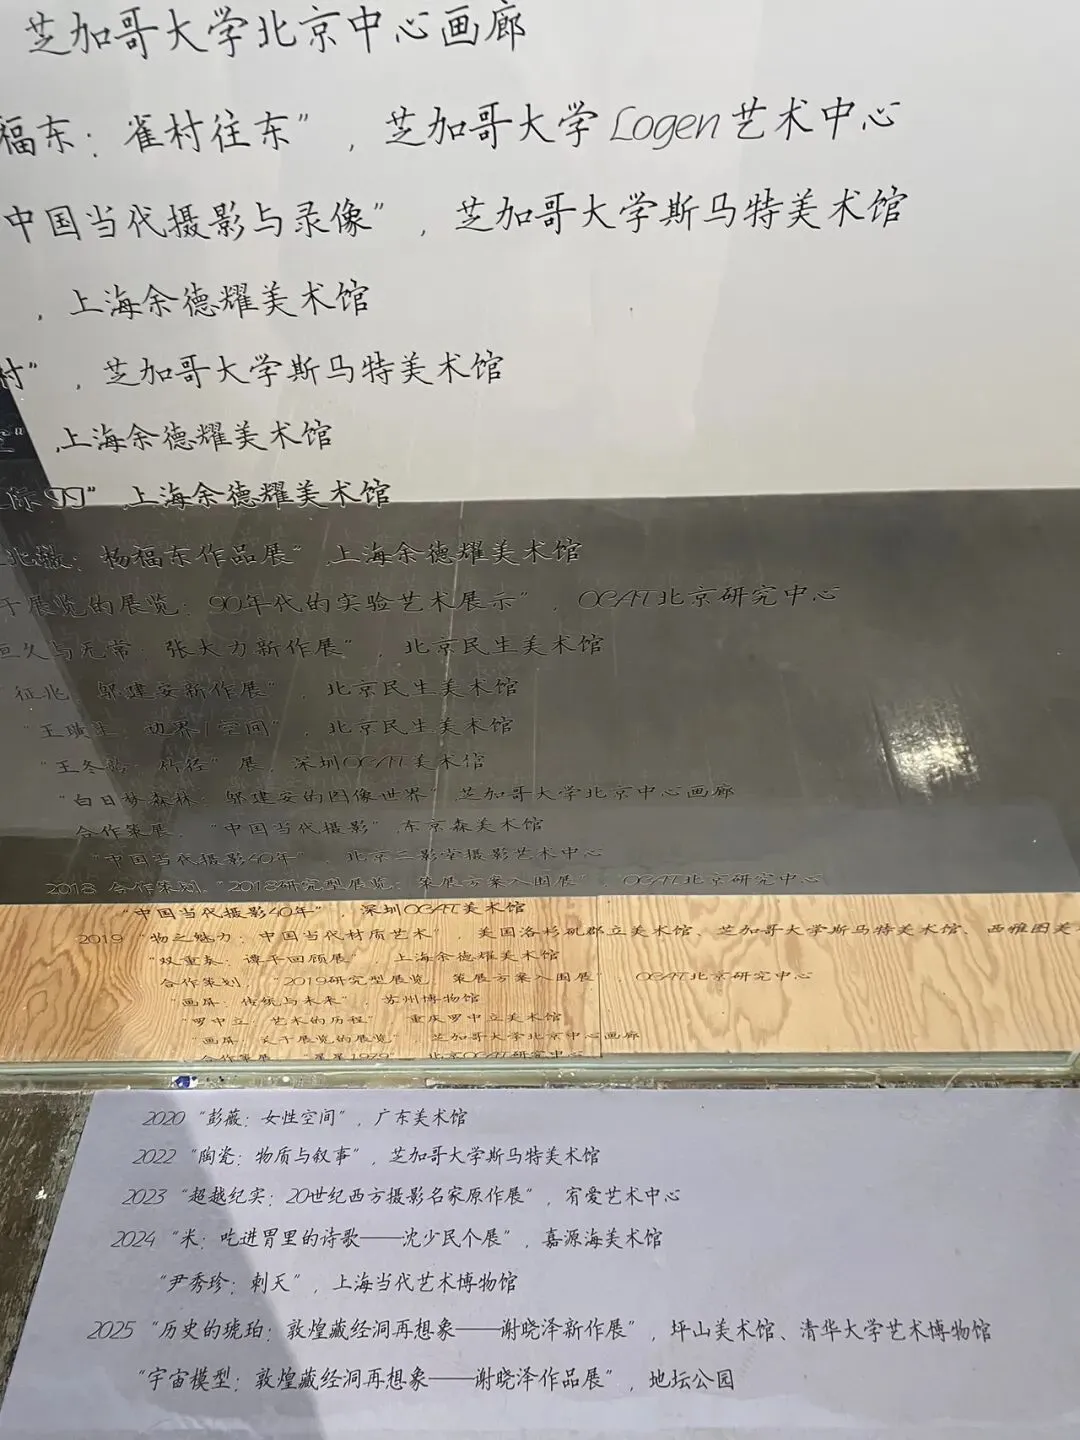 芝加哥大学北京中心画廊
福东：雀村往东”，芝加哥大学Logen艺术中心
中国当代摄影与录像”，芝加哥大学斯马特美术馆
，上海余德耀美术馆
村”，芝加哥大学斯马特美术馆
”，上海余德耀美术馆
际99”，上海余德耀美术馆
：杨福东作品展”，上海余德耀美术馆
于展览的展览：90年代的实验艺术展示”，OCAT北京研究中心
恒久与无常：张大力新作展”，北京民生美术馆
“征兆：邬建安新作展”，北京民生美术馆
“王璜生：边界/空间”，北京民生美术馆
“王冬龄：竹径”展，深圳OCAT美术馆
“白日梦森林：邬建安的图像世界”，芝加哥大学北京中心画廊
合作策展，“中国当代摄影”，东京森美术馆
“中国当代摄影40年”，北京三影堂摄影艺术中心
2018 合作策划，“2018研究型展览：策展方案入围展”，OCAT北京研究中心
“中国当代摄影40年”，深圳OCAT美术馆
2019 “物之魅力：中国当代材质艺术”，美国洛杉矶郡立美术馆、芝加哥大学斯马特美术馆、西雅图美
“双重奏：谭平回顾展”，上海余德耀美术馆
合作策划，“2019研究型展览：策展方案入围展”，OCAT北京研究中心
“画屏：传统与未来”，苏州博物馆
“罗中立：艺术的历程”，重庆罗中立美术馆
“画屏：关于展览的展览”，芝加哥大学北京中心画廊
合作策展，“星星1979”，北京OCAT研究中心
2020 “彭薇：女性空间”，广东美术馆
2022 “陶瓷：物质与叙事”，芝加哥大学斯马特美术馆
2023 “超越纪实：20世纪西方摄影名家原作展”，宥爱艺术中心
2024 “米：吃进胃里的诗歌——沈少民个展”，嘉源海美术馆
“尹秀珍：刺天”，上海当代艺术博物馆
2025 “历史的琥珀：敦煌藏经洞再想象——谢晓泽新作展”，坪山美术馆、清华大学艺术博物馆
“宇宙模型：敦煌藏经洞再想象——谢晓泽作品展”，地坛公园